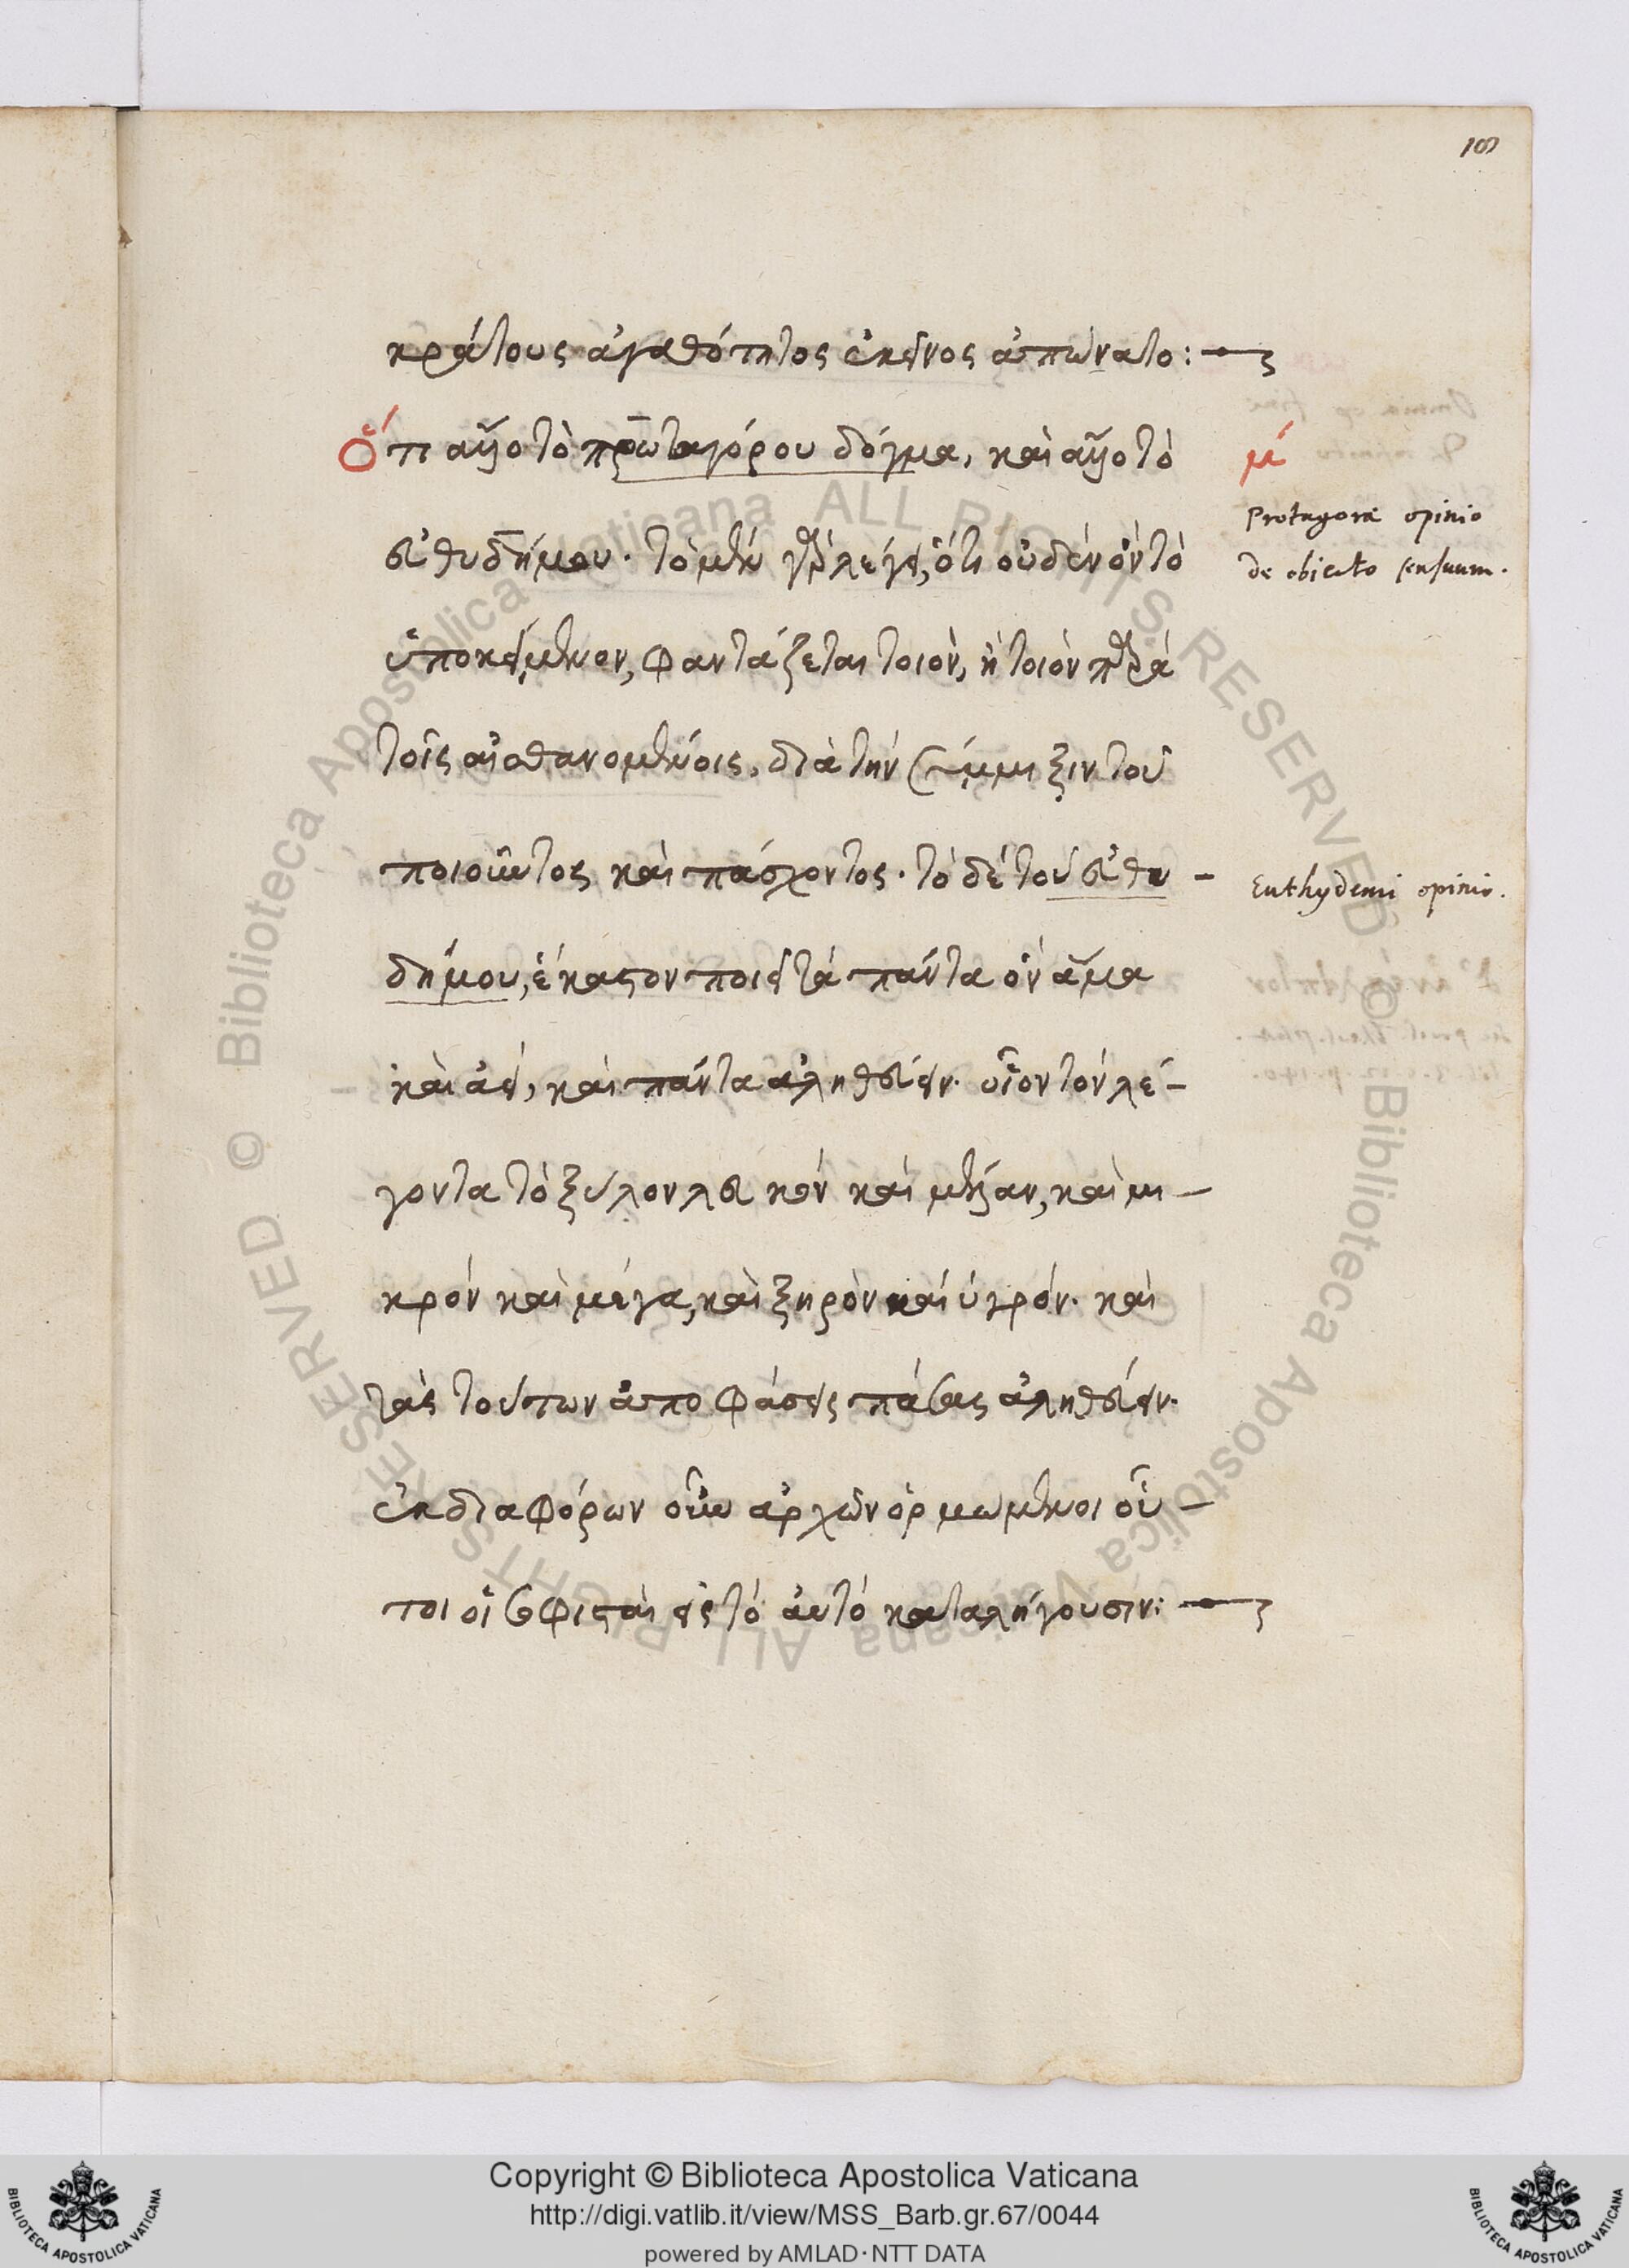 109
κράτους ἀγαθότητος ἐκεῖνος ἀπώνατο:
Ὅτι ἄλλο τὸ πρωταγόρου δόγμα, καὶ ἄλλο τὸ
μά
Protagorae opinio
de obiecto sensuum.
εὐθυδήμου. τὸ μὲν γὰρ λέγει, ὅτι οὐδὲν ὂν τὸ
ὑποκείμενον, φαντάζεται τοιὸν, ἢ τοιὸν παρὰ
τοῖς αἰσθανομένοις, διὰ τὴν σύμμιξιν τοῦ
ποιοῦντος καὶ πάσχοντος. τὸ δὲ τοῦ εὐθυ-
Euthydemi opinio.
δήμου, ἕκαστον ποιεῖ τὰ πάντα ὂν ἅμα
καὶ ἀεί, καὶ πάντα ἀληθεύειν. οἷον τὸν λέ-
γοντα τὸ ξύλον λευκὸν καὶ μέλαν, καὶ μι-
κρὸν καὶ μέγα, καὶ ξηρὸν καὶ ὑγρόν. καὶ
τὰς τούτων ἀποφάσεις πάσας ἀληθεύειν.
ἐκ διαφόρων οὖν ἀρχῶν ὁρμώμενοι οὗ-
τοι οἱ σοφισταὶ εἰς τὸ αὐτὸ καταλήγουσιν:
Biblioteca Apostolica Vaticana ALL RIGHTS RESERVED ©
Copyright © Biblioteca Apostolica Vaticana
http://digi.vatlib.it/view/MSS_Barb.gr.67/0044
powered by AMLAD·NTT DATA
BIBLIOTECA APOSTOLICA VATICANA
BIBLIOTECA APOSTOLICA VATICANA